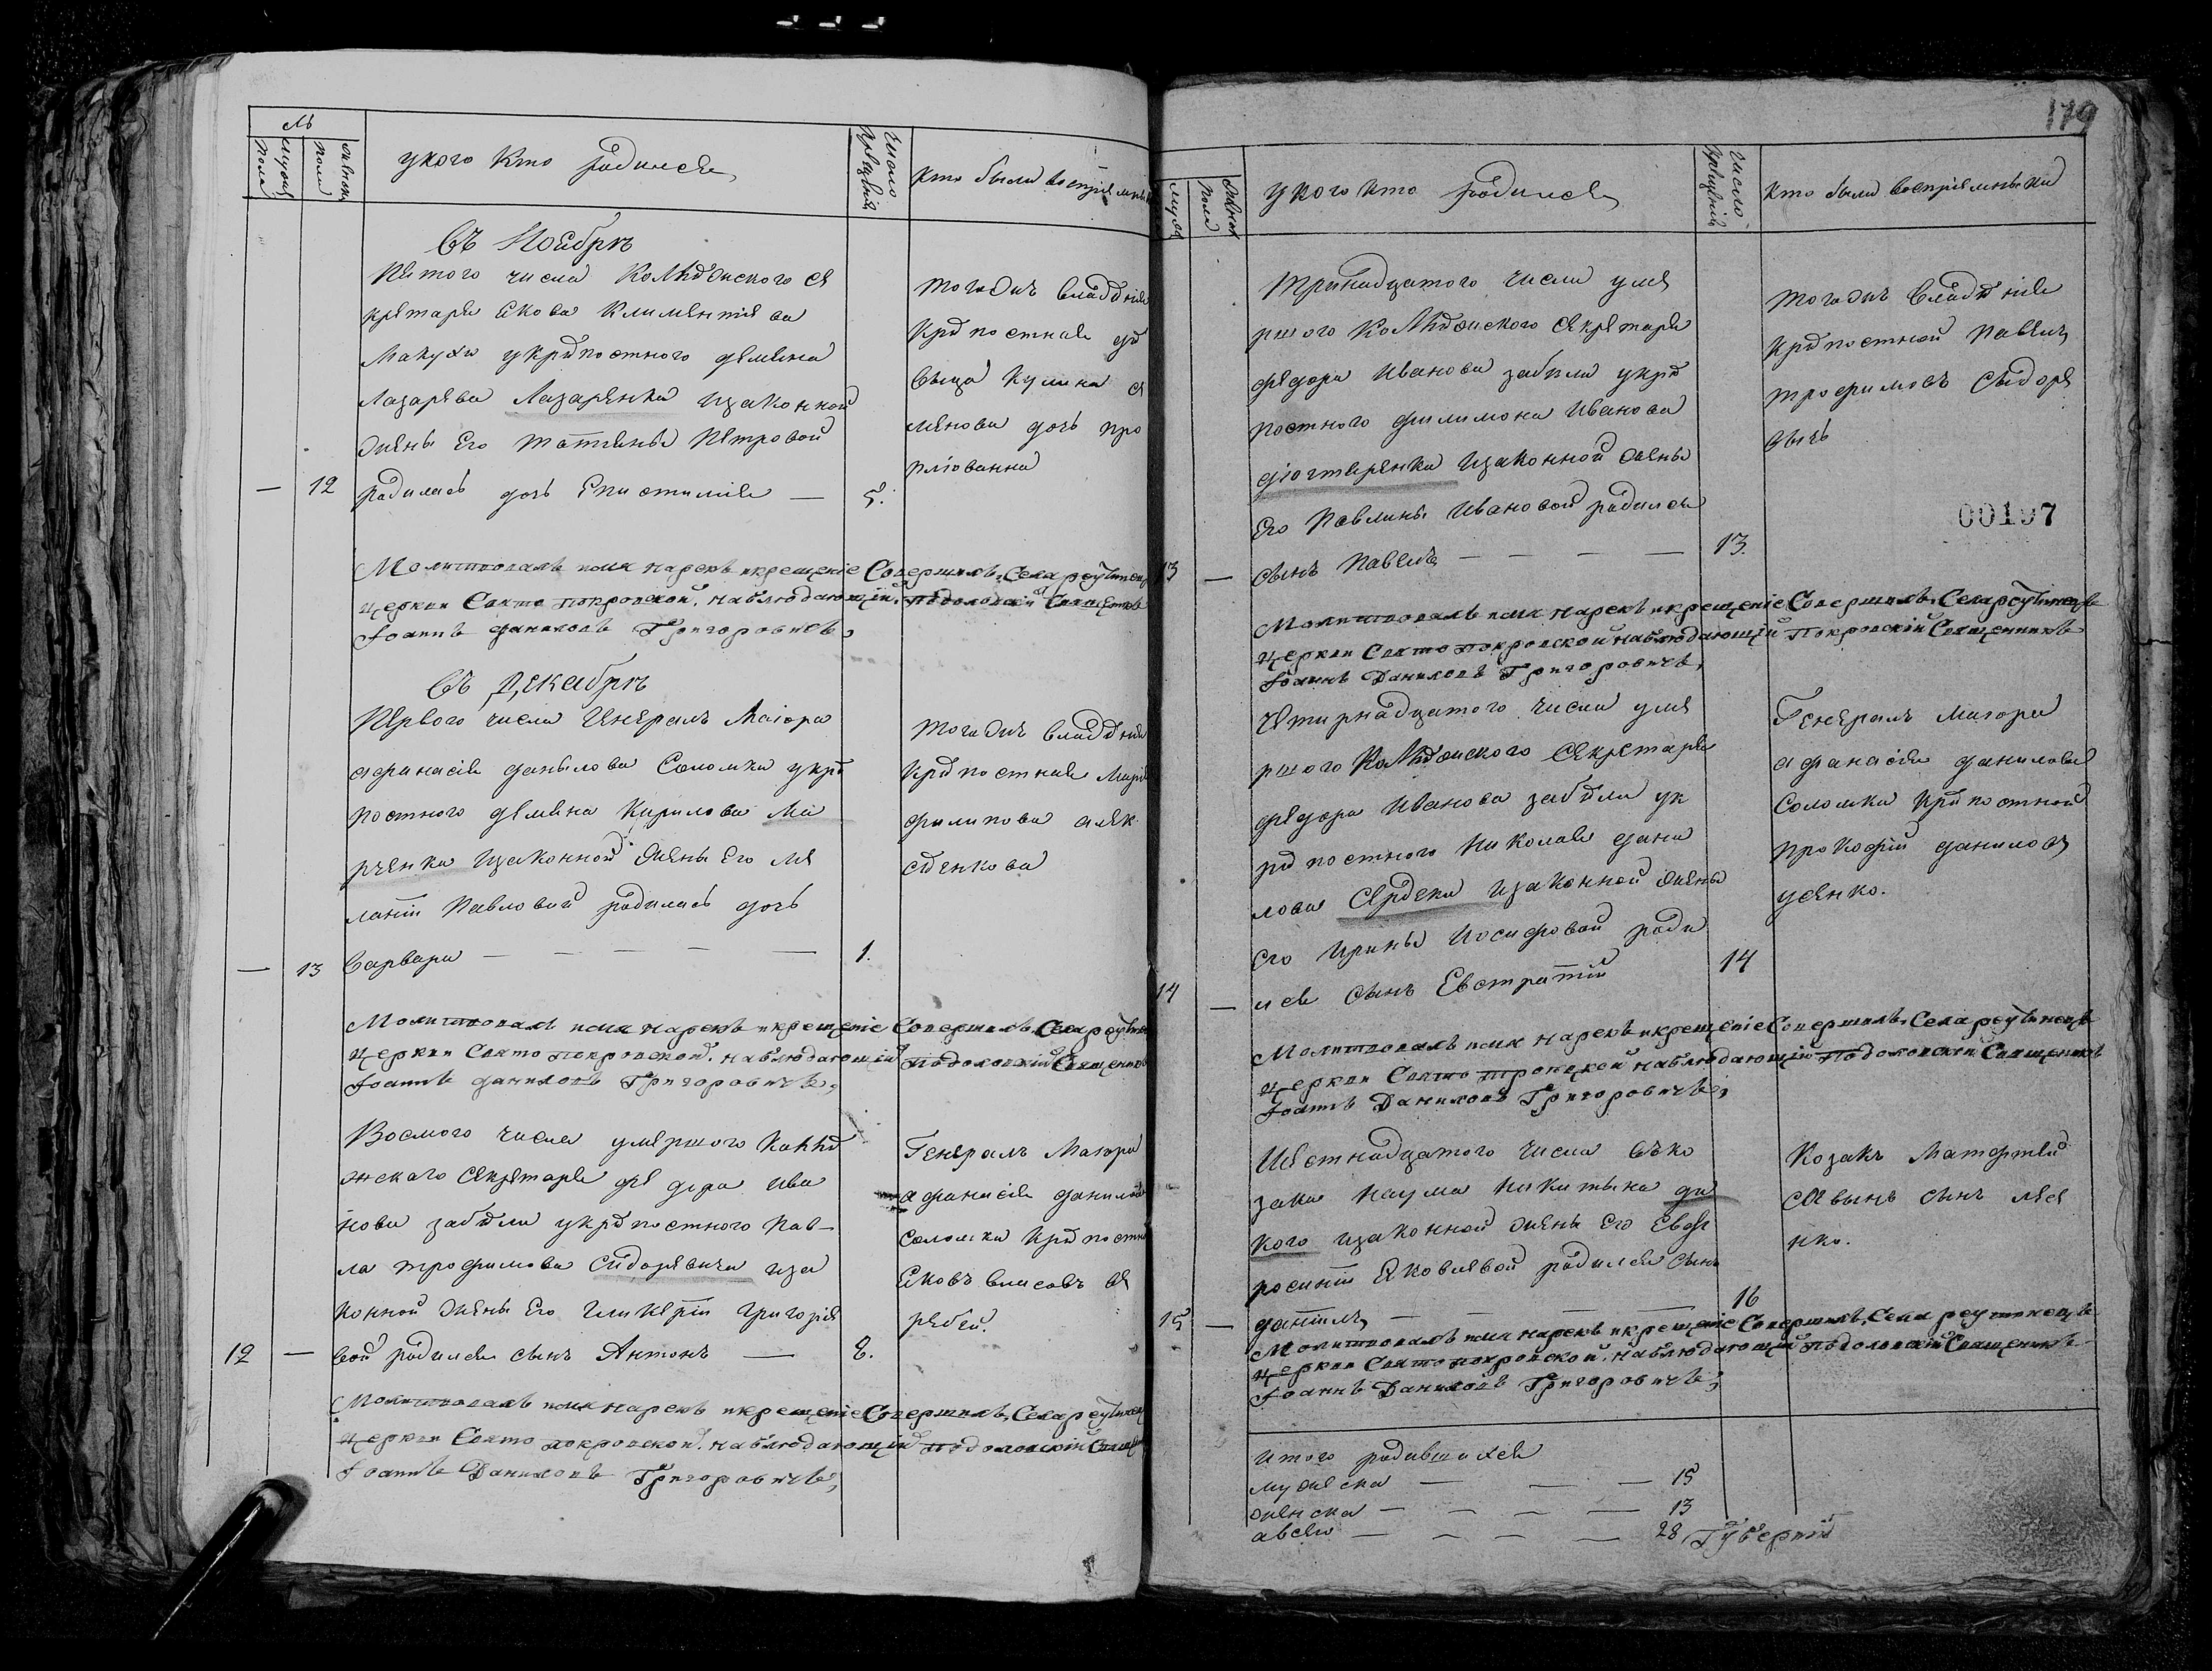 №
мужеска пола
женска пола
укого кто родился
число крещенія
кто были воспріемники
Въ Ноябрѣ
Пятого числа колѣжского се
кретаря Якова Климентіева
Макухи укрѣпостного демена
Лазарева Лазаренка изаконной
жены Его Татіаны Петровой
— 12 родилась дочь Епистимія — 5.
тогожъ владѣнія
крѣпостная
вица Кулина се
менова дочь про
Молитвовалъ имя нарекъ икрещеніе Совершилъ, Села реутинец
церкви Свято покровской. наблюдающій. подоловскій Священикъ
Іоаннъ даниловъ Григоровичъ,
Въ Декабрѣ
Первого числа Генералъ Маіора
афанасія данылова Соломки укрѣ
постного демена Кирилова Ма
рченка изаконной жены Его Ме
ланіи Павловой родилась дочь
— 13 Варвара — — — — 1.
тогожъ владѣнія
крѣпостная Марія
филипова алек
сѣенкова
Молитвовалъ имя нарекъ икрещеніе Совершилъ, Села реутин
церкви Свято покровской. наблюдающій подоловскій Священик
Іоаннъ даниловъ Григоровичъ,
Восмого числа умершого колѣ
жскаго секретаря федора Ива
нова забѣлы укрѣпостного пав-
ла трофимова Сидоревича иза
конной жены Его Гликеріи григоріе
12 — вой родился сынъ Антонъ — 8.
Генералъ Маіора
афанасія данилов
соломки крѣпостн
Яковъ власовъ
Молитвовалъ имя нарекъ икрещеніе Совершилъ, Села реутинец
церкви Свято покровской. наблюдающій подоловскій Свящ
Іоаннъ Даниловъ Григоровичъ,
179
мужеска
женска пола
укого кто родился
число крещеній
кто были воспріемники
Тринадцатого числа уме
ршого колѣжского секретаря
федора Иванова забѣлы укрѣ
постного филимона Иванова
дюгтяренка изаконной жены
Его Павлины Ивановой родился
13 — сынъ Павелъ — — — — 13.
тогожъ владѣнія
крѣпостной Павелъ
трофимовъ сыдоре
вычъ
00197
Молитвовалъ имя нарекъ икрещеніе Совершилъ, Села реутинецъ
церкви Свято покровской наблюдающій Покровскій Священникъ
Іоаннъ Даниловъ Григоровичъ,
Чтирнадцатого числа уме
ршого колѣжского Секретаря
федора Иванова забѣлы ук
рѣпостного Николая дани
лова Сердека изаконной жены
его Ирины Иосифовой роди
14 — лся сынъ Евстратій 14
Генералъ Маіора
афанасія данилова
соломки крѣпостной
прокофій даниловъ
усенко.
Молитвовалъ имя нарекъ икрещеніе Совершилъ, Села реутинецъ
церкви Свято троицкой наблюдающій подоловскій Священикъ
Іоаннъ Даниловъ Григоровичъ,
Шестнадцатого числа въко
зака Наума Никитына ди
кого изаконной жены Его Евф
росиніи Яковлевой родился сынъ
15 — даніилъ — — — 16
Козакъ Матфтей
савынъ сынъ лев
нко.
Молитвовалъ имя нарекъ икрещеніе Совершилъ, Села реутинецъ
церкви Свято покровской, наблюдающій подоловскій Священикъ
Іоаннъ Даниловъ Григоровичъ,
Итого родившихся
мужеска — — — 15
женска — — — — 13
авсего — — — — 28
Губерній